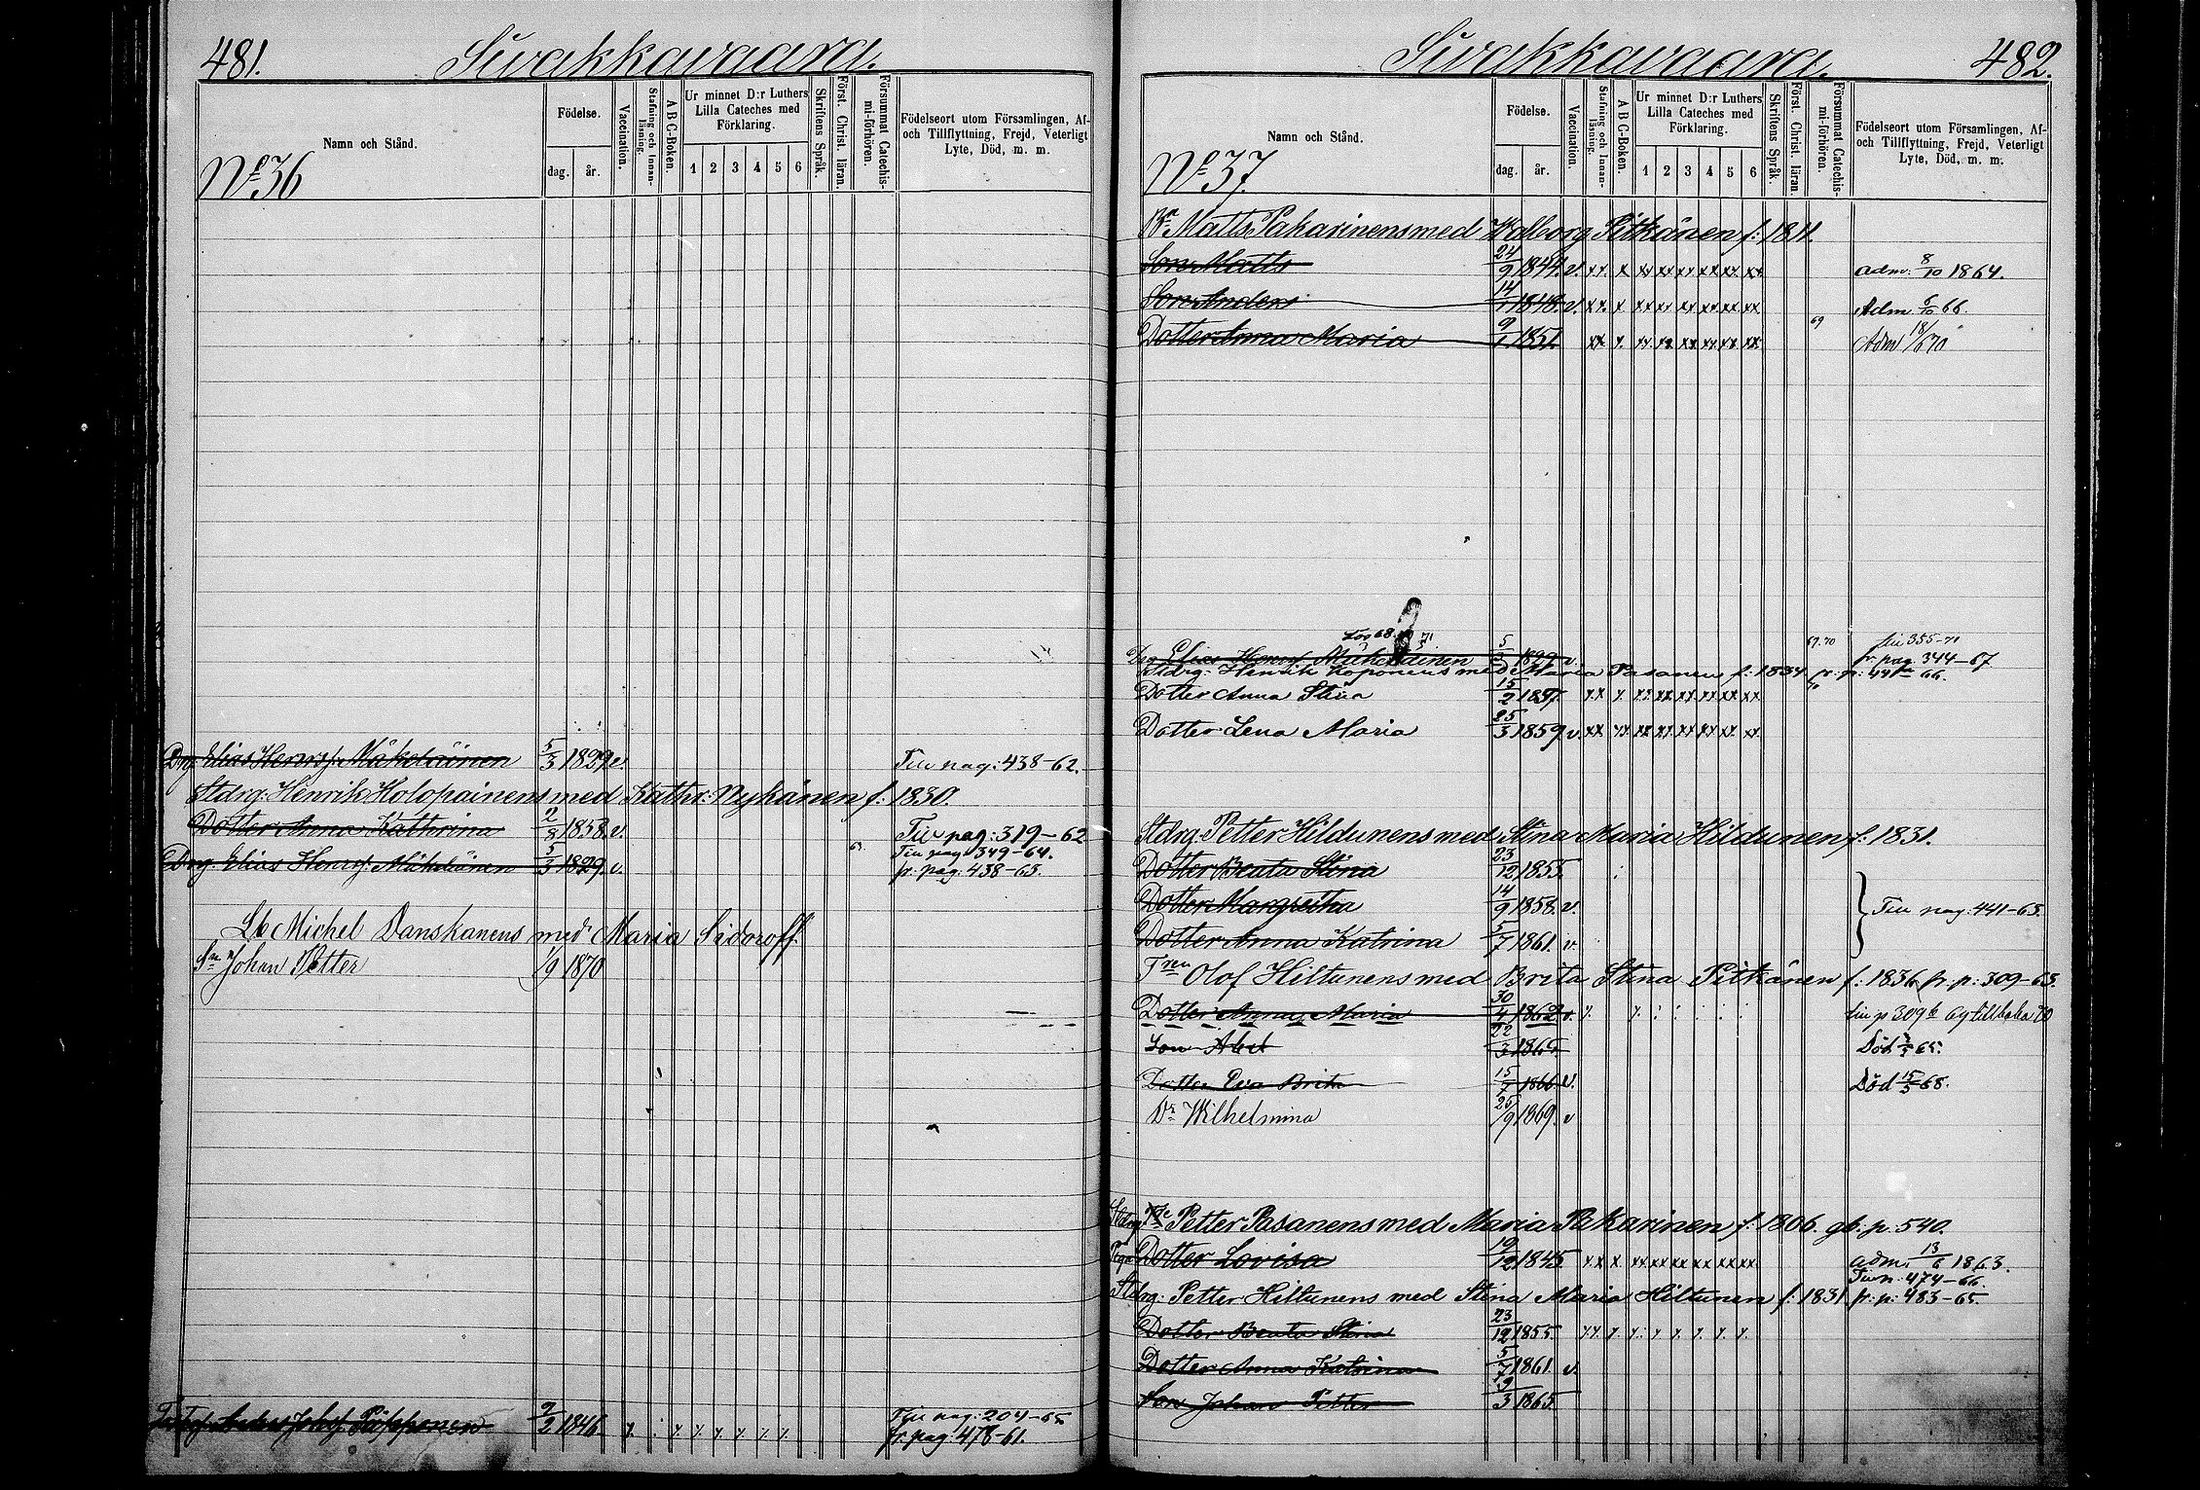 481. Sivakkavaara.
Namn och Stånd.
Födelse.
dag. år.
Vaccination.
Stafning och Innanläsning.
A B C-Boken.
Ur minnet D:r Luthers Lilla Cateches med Förklaring.
1 2 3 4 5 6
Skriftens Språk.
Först. Christ. läran.
Försummat Catechismi-förhören.
Födelseort utom Församlingen, Af- och Tillflyttning, Frejd, Veterligt Lyte, Död, m. m.
No 36
Drg Elias Henrsf. Mäkeläinen 5/3 1829 v. Till pag: 438-62.
Stdrg: Henrik Holopainens med Kathr: Nykänen f: 1830.
Dotter Anna Kathrina 2/8 1858. v. Till pag: 319-62
Drg. Elias Henrsf. Mäkeläinen 5/3 1829. v. 63. Till pag: 349-64.
fr. pag: 438-63.
Lb Michel Danskanens med Maria Sidoroff.
Sn Johan Petter 1/9 1870
Johsf. Päpponen 9/2 1846. Till pag: 204-65
fr. pag: 478-61.
Sivakkavaara. 482.
Namn och Stånd.
Födelse.
dag. år.
Vaccination.
Stafning och Innanläsning.
A B C-Boken.
Ur minnet D:r Luthers Lilla Cateches med Förklaring.
1 2 3 4 5 6
Skriftens Språk.
Först. Christ. läran.
Försummat Catechismi-förhören.
Födelseort utom Församlingen, Af- och Tillflyttning, Frejd, Veterligt Lyte, Död, m. m.
No 37.
Bn Matts Pakarinens med Walborg Pitkänen f: 1811.
Son Matts 24/9 1844. v. xx x xx xx xx xx xx xx adm: 8/10 1864.
Son Anders 14/ 1848. v. xx x xx xx xx xx xx xx Adm 6/10 66.
Dotter Anna Maria 9/1 1851. xx x xx xx xx xx xx xx 69 Adm 18/6 70
Drg Elias Henrsf Mäkeläinen 5/3 1829 v. 69.70 till 355-71
fr. pag 344-67
Stdrg: Henrik Koponens med Maria Pasanen f: 1834 fr: p: 441-66.
Dotter Anna Stina 15/2 1857. xx x xx xx xx xx xx xx 70
Dotter Lena Maria 25/3 1859 v. xx xx xx xx xx xx xx xx
Stdrg: Petter Hildunens med Stina Maria Hildunen f: 1831.
Dotter Beata Stina 23/12 1855.
Dotter Margretha 14/9 1858. v. Till pag: 441-63.
Dotter Anna Katrina 5/7 1861. v.
Olof Hiltunens med Brita Stina Pitkänen f: 1836 fr. p: 309-63.
Dotter Anna Maria 30/4 1862 v. till p 309 b 69 tillbaka 70
Son Abel 22/3 1865 Död 65.
Dotter Eva Brita 15/ 1866 v. Död 15/5 68.
Dr Wilhelmina 25/9 1869. v
Stdrg Petter Pasanens med Maria Pakarinen f: 1806. gb: p: 540.
Dotter Lovisa 19/12 1845 xx x xx xx xx xx xx xx adm. 13/6 1863.
Till p: 474-66.
Stdrg: Petter Hiltunens med Stina Maria Hiltunen f: 1831 fr: p: 483-65.
Dotter Beata Stina 23/12 1855
Dotter Anna Katrina 5/7 1861 v.
Son Johan Petter 19/3 1865